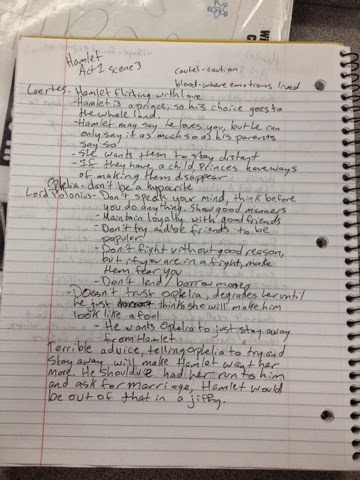 Hamlet
Act 1 scene 3
cautel-caution
blood-where emotions lived
Laertes-Hamlet flirting with love
-Hamlet is a prince, so his choice goes to
the whole land.
-Hamlet may say he loves you, but he can
only say it as much so as his parents
say so
-she wants them to stay distant
-If they have a child, Princes have ways
of making them disappear
Ophelia-don't be a hypocrite
Lord Polonius-Don't speak your mind, think before
you do anything. Show good manners
-Maintain loyalty with good friends
-Don't try and be friends to be
popular
-Don't fight without good reason,
but if you are in a fight, make
them fear you
-Don't lend/borrow money
-Doesn't trust Ophelia, degrades her until
he just thinks she will make him
look like a fool
-He wants Ophelia to just stay away
from Hamlet
Terrible advice, telling Ophelia to try and
stay away will make Hamlet want her
more. He should've had her run to him
and ask for marriage, Hamlet would
be out of that in a jiffy.